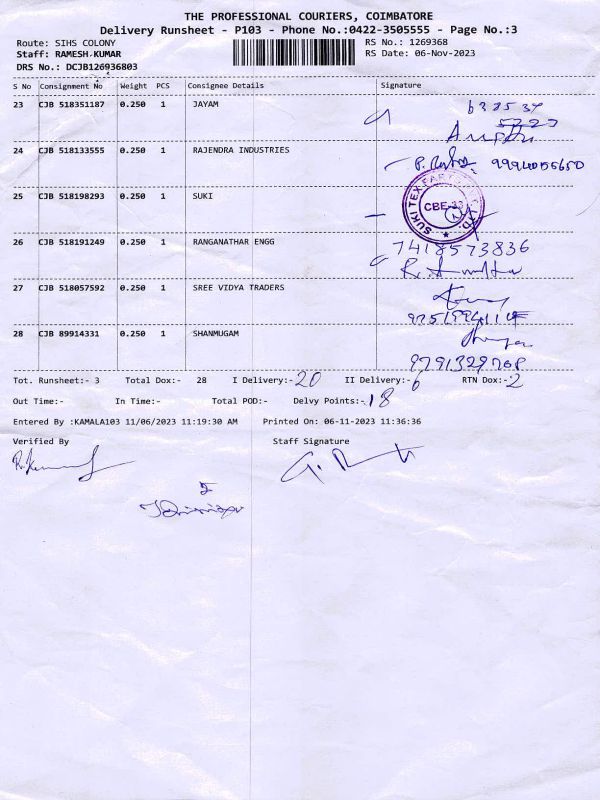 THE PROFESSIONAL COURIERS, COIMBATORE
Delivery Runsheet - P103 - Phone No.:0422-3505555 - Page No.:3
Route: SIHS COLONY
RS No.: 1269368
Staff: RAMESH-KUMAR
RS Date: 06-Nov-2023
DRS No.: DCJB126936803
S No Consignment No Weight PCS Consignee Details Signature
23 CJB 518351187 0.250 1 JAYAM
24 CJB 518133555 0.250 1 RAJENDRA INDUSTRIES
25 CJB 518198293 0.250 1 SUKI
CBE-33
26 CJB 518191249 0.250 1 RANGANATHAR ENGG 7418573836
27 CJB 518057592 0.250 1 SREE VIDYA TRADERS
28 CJB 89914331 0.250 1 SHANMUGAM
9791329768
Tot. Runsheet:- 3 Total Dox:- 28 I Delivery:- 20 II Delivery:- 6 RTN Dox:- 2
Out Time:- In Time:- Total POD:- Delvy Points:- 18
Entered By :KAMALA103 11/06/2023 11:19:30 AM Printed On: 06-11-2023 11:36:36
Verified By Staff Signature